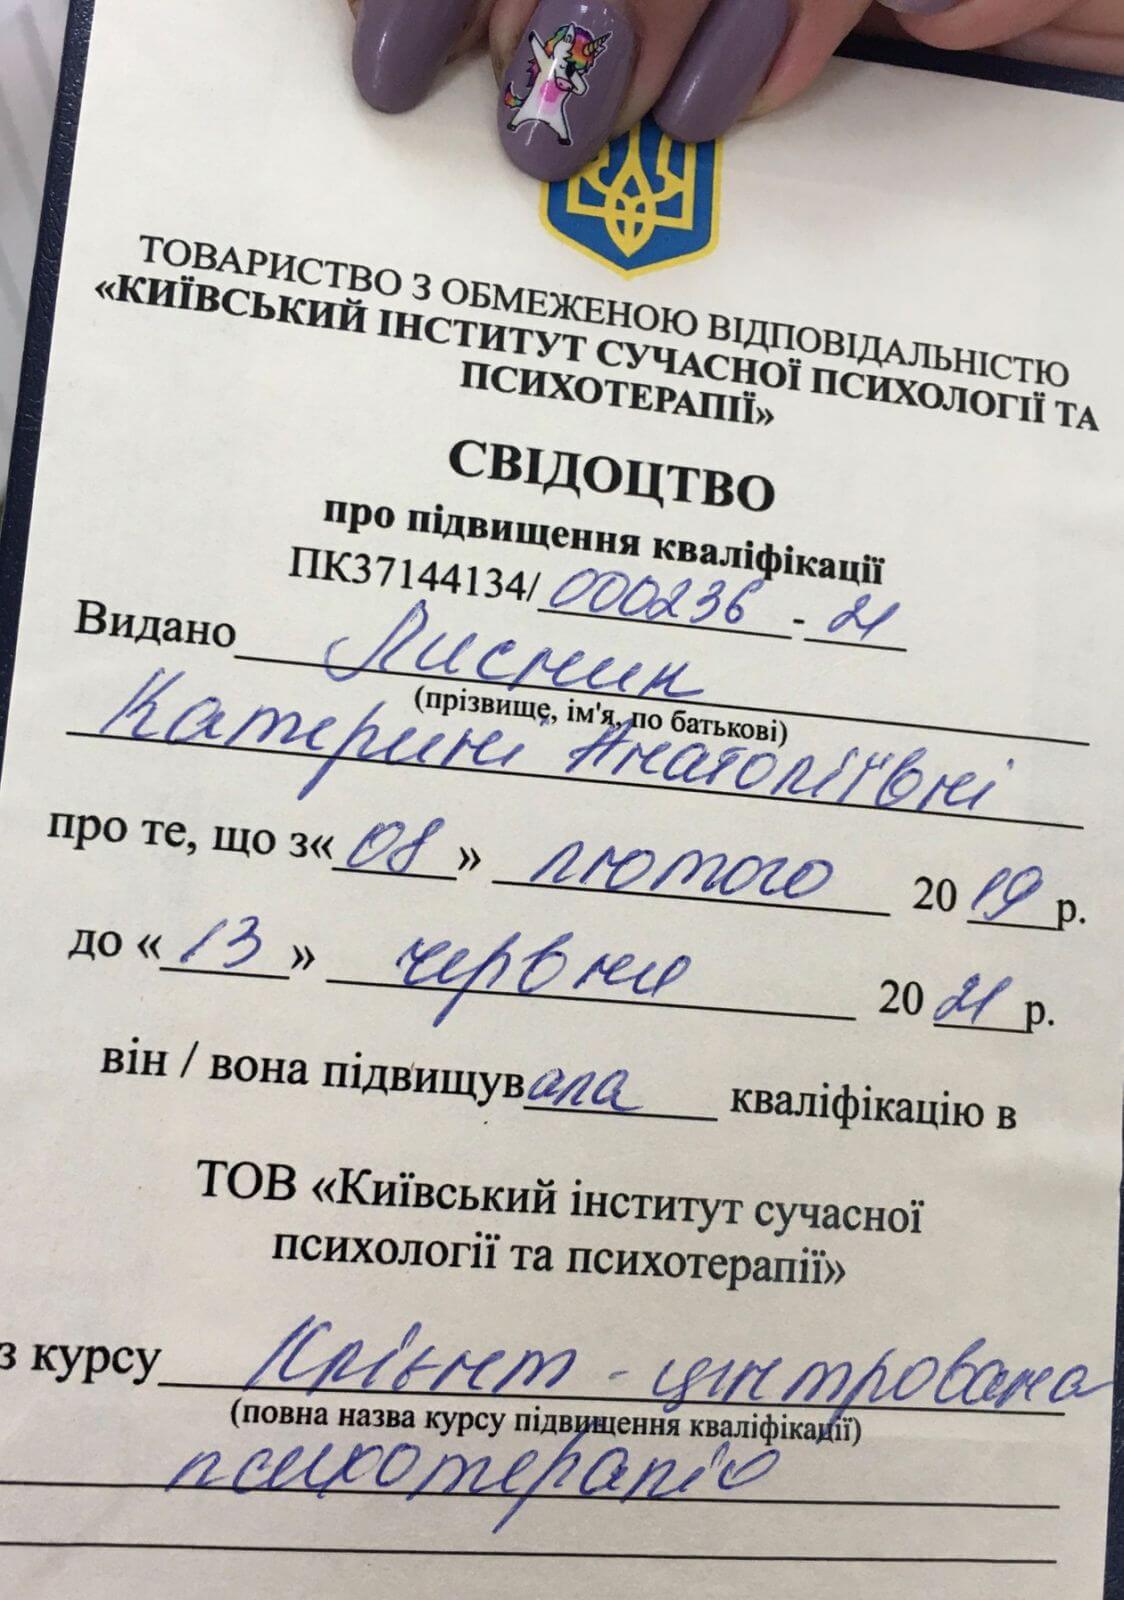 ТОВАРИСТВО З ОБМЕЖЕНОЮ ВІДПОВІДАЛЬНІСТЮ
«КИЇВСЬКИЙ ІНСТИТУТ СУЧАСНОЇ ПСИХОЛОГІЇ ТА
ПСИХОТЕРАПІЇ»
СВІДОЦТВО
про підвищення кваліфікації
ПК37144134/ 000236 - 21
Видано Лисмин
(прізвище, ім'я, по батькові)
Катерині Анатоліївні
про те, що з« 08 » лютого 20 19 р.
до « 13 » червня 20 21 р.
він / вона підвищувала кваліфікацію в
ТОВ «Київський інститут сучасної
психології та психотерапії»
з курсу Клієнт - центрована
(повна назва курсу підвищення кваліфікації)
психотерапія